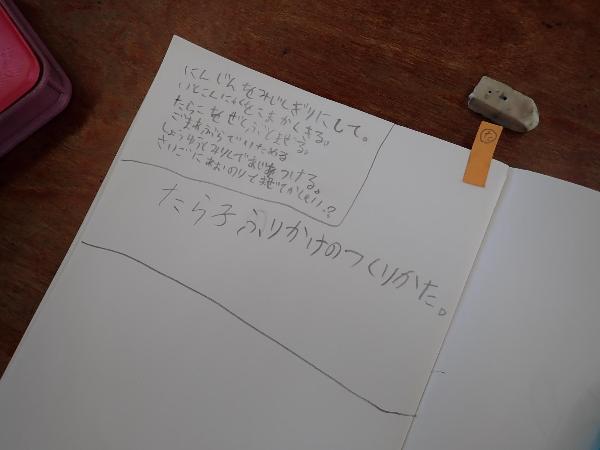 にんじんをみじんぎりにして。
いとこんにゃくをこまかくきる。
たらこをぜんぶとまぜる。
ごまあぶらでいためる
しょうゆとみりんであじをつける。
さいごにあおのりてまぜてかんせい?
たら子ふりかけのつくりかた。
た